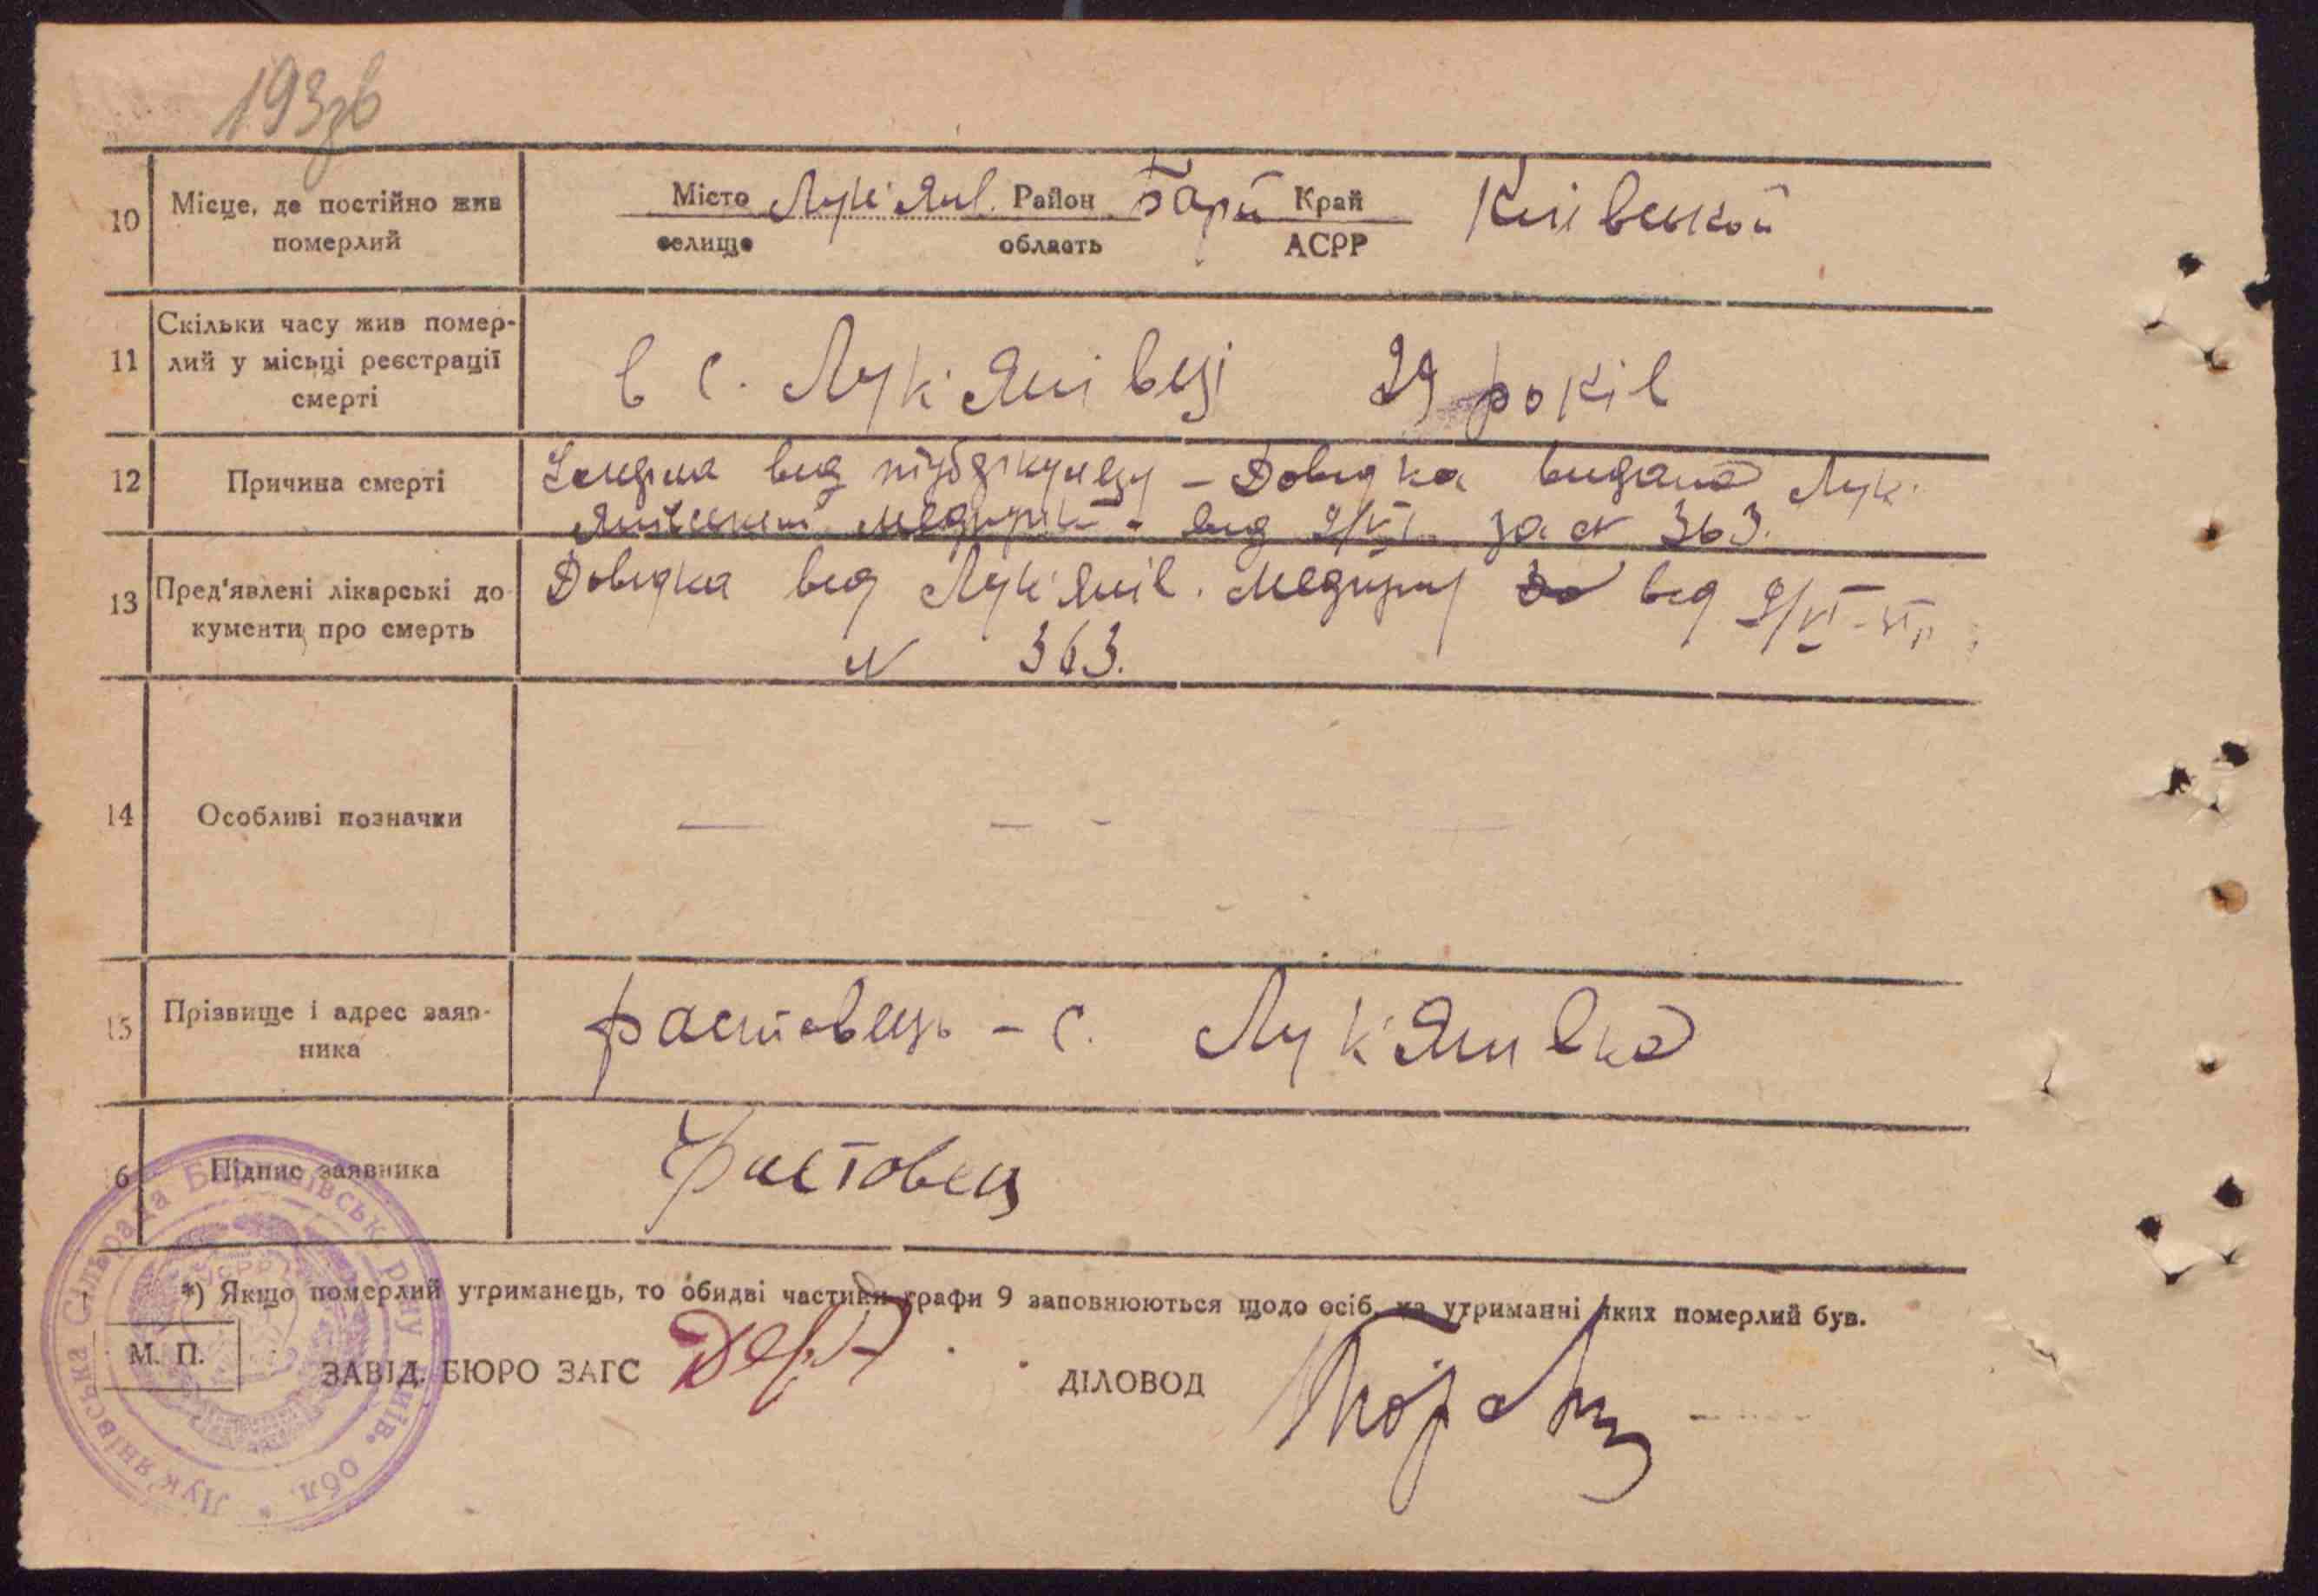 193зв
10 Місце, де постійно жив
померлий
Місто Лук'янів. Район Бари Край Київської
селище область АСРР
11 Скільки часу жив помер-
лий у місьці реєстрації
смерті
в с. Лук'янівці 29 років
12 Причина смерті
від туберкульозу – Довідка видана Лук.
від 9/VI за N 363.
13 Пред'явлені лікарські до
кументи про смерть
Довідка від Лук'янів. від 9/VI
N 363.
14 Особливі позначки
— — - —
15 Прізвище і адрес заяв-
ника
Фастовець – с. Лук'янивка
6 Підпис заявника
Фастовец
*) Якщо померлий утриманець, то обидві частини графи 9 заповнюються щодо осіб, на утриманні яких померлий був.
М. П.
ЗАВІД. БЮРО ЗАГС
ДІЛОВОД
Лук'янівська Сільрада Баришівськ. р-ну Київ. обл. *
УСРР